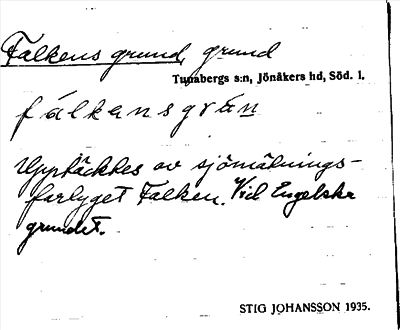 Falkens grund, grund
Tunabergs s:n, Jönåkers hd, Söd. l.
fálkansgrần
Upptäcktes av sjömätnings-
fartyget Falken. Vid Engelska
grundet.
STIG JOHANSSON 1935.